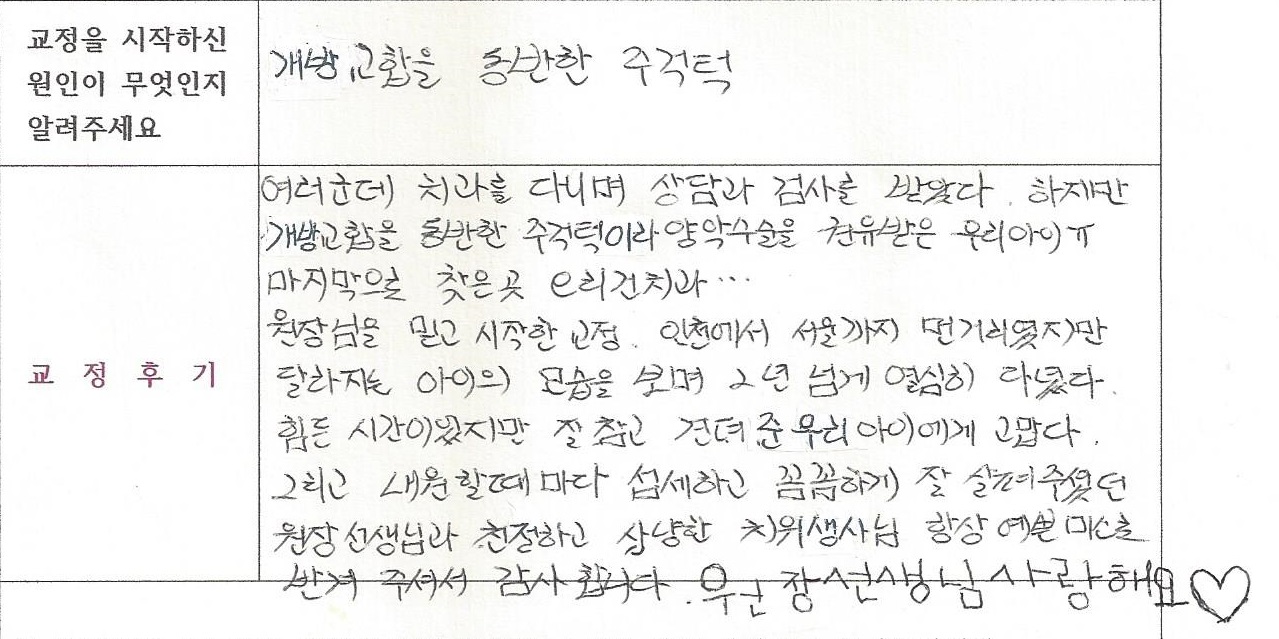 교정을 시작하신
원인이 무엇인지
알려주세요
개방교합을 동반한 주걱턱
교정후기
여러군데 치과를 다니며 상담과 검사를 받았다. 하지만
개방교합을 동반한 주걱턱이라 양악수술을 권유받은 우리아이ㅠ
마지막으로 찾은곳 e리건치과...
원장님을 믿고 시작한 교정. 인천에서 서울까지 먼거리였지만
달라지는 아이의 모습을 보며 2년 넘게 열심히 다녔다.
힘든 시간이었지만 잘 참고 견뎌준 우리아이에게 고맙다.
그리고 내원할때마다 섬세하고 꼼꼼하게 잘 살펴주셨던
원장선생님과 친절하고 상냥한 치위생사님 항상 예쁜 미소로
반겨 주셔서 감사합니다. 우군장선생님사랑해요♡